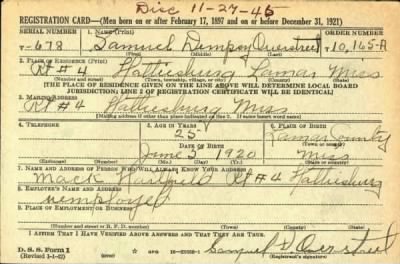 Disc 11-27-45
REGISTRATION CARD—(Men born on or after February 17, 1897 and on or before December 31, 1921)
SERIAL NUMBER 1. NAME (Print) ORDER NUMBER
T-678 Samuel Dempsy Overstreet 10,165-A
2. PLACE OF RESIDENCE (Print)
Rt #4 Hattiesburg Lamar Miss
(Number and street) (Town, township, village, or city) (County) (State)
(THE PLACE OF RESIDENCE GIVEN ON THE LINE ABOVE WILL DETERMINE LOCAL BOARD
JURISDICTION; LINE 2 OF REGISTRATION CERTIFICATE WILL BE IDENTICAL)
3. MAILING ADDRESS
Rt #4 Hattiesburg Miss
(Mailing address if other than place indicated on line 2. If same insert word same)
4. TELEPHONE 5. AGE IN YEARS 6. PLACE OF BIRTH
25 Lamar County
DATE OF BIRTH (Town or county)
June 5 1920 Miss
(Exchange) (Number) (Mo.) (Day) (Yr.) (State or country)
7. NAME AND ADDRESS OF PERSON WHO WILL ALWAYS KNOW YOUR ADDRESS
Mack Hartfield Rt #4 Hattiesburg
8. EMPLOYER'S NAME AND ADDRESS
unemployed
9. PLACE OF EMPLOYMENT OR BUSINESS
(Number and street or R. F. D. number) (Town) (County) (State)
I AFFIRM THAT I HAVE VERIFIED ABOVE ANSWERS AND THAT THEY ARE TRUE.
D. S. S. Form 1
(Revised 1-1-42) GPO Samuel D Overstreet
(Registrant's signature)